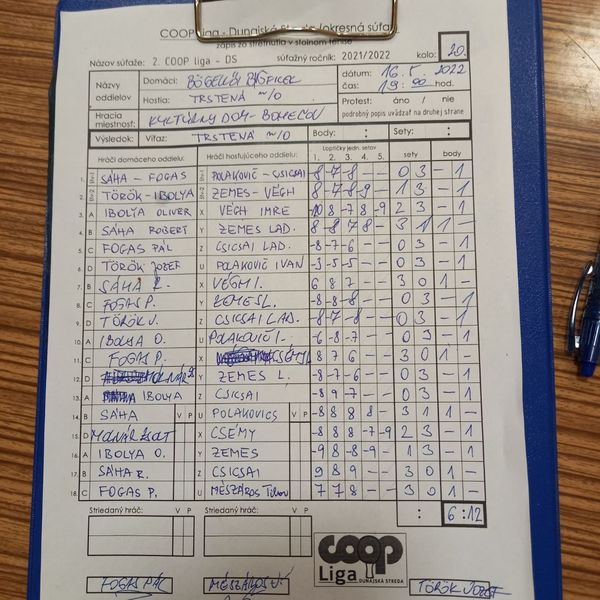 COOP Liga - Dunajská Streda (okresná súťaž)
zápis zo stretnutia v stolnom tenise
Názov súťaže: 2. COOP Liga - DS súťažný ročník: 2021/2022 kolo: 20.
Názvy oddielov
Domáci:
Hostia: TRSTENÁ n/O
dátum: 16. 5. 2022
čas: 19 00 hod.
Hracia miestnosť: KULTÚRNY DOM -
Protest: áno / nie
podrobný popis uvádzať na druhej strane
Výsledok: Víťaz: TRSTENÁ n/O Body: : Sety: :
Hráči domáceho oddielu: Hráči hosťujúceho oddielu: Loptičky jedn. setov sety body
1. 2. 3. 4. 5.
1. SÁHA - FOGAS POLAKOVIČ - CSICSAI 8 -7 -8 - - 0 3 - 1
2. TÖRÖK - IBOLYA ZEMES - VÉGH 8 -7 -8 -9 - 1 3 - 1
3. A IBOLYA OLIVER X VÉGH IMRE -10 8 -7 8 -9 2 3 - 1
4. B SÁHA ROBERT Y ZEMES LAD. 8 -8 7 8 - 3 1 1 -
5. C FOGAS PÁL Z CSICSAI LAD. -8 -7 -6 - - 0 3 - 1
6. D TÖRÖK JOZEF U POLAKOVIČ IVAN -3 -5 -5 - - 0 3 - 1
7. B SÁHA R. X VÉGH I. 6 8 7 - - 3 0 1 -
8. C FOGAS P. Y ZEMES L. -8 -8 -8 - - 0 3 - 1
9. D TÖRÖK J. Z CSICSAI LAD. -8 -7 -8 - - 0 3 - 1
10. A IBOLYA O. U POLAKOVIČ I. -6 -8 -7 - - 0 3 - 1
11. C FOGAS P. X 8 7 6 - - 3 0 1 -
12. D Y ZEMES L. -8 -7 -6 - - 0 3 - 1
13. A IBOLYA Z CSICSAI -8 9 -7 - - 0 3 - 1
14. B SÁHA V P U POLAKOVICS V P -8 8 8 8 - 3 1 1 -
15. D MOLNÁR ZSOLT X CSÉMY -8 8 8 -7 -9 2 3 - 1
16. A IBOLYA O. Y ZEMES -9 8 -8 -9 - 1 3 - 1
17. B SÁHA R. Z CSICSAI 9 8 9 - - 3 0 1 -
18. C FOGAS P. U MÉSZÁROS 7 7 8 - - 3 0 1 -
Striedaný hráč: V P Striedaný hráč: V P : 6 : 12
coop
Liga DUNAJSKÁ STREDA
FOGAS PÁL MÉSZÁROS TÖRÖK JOZEF